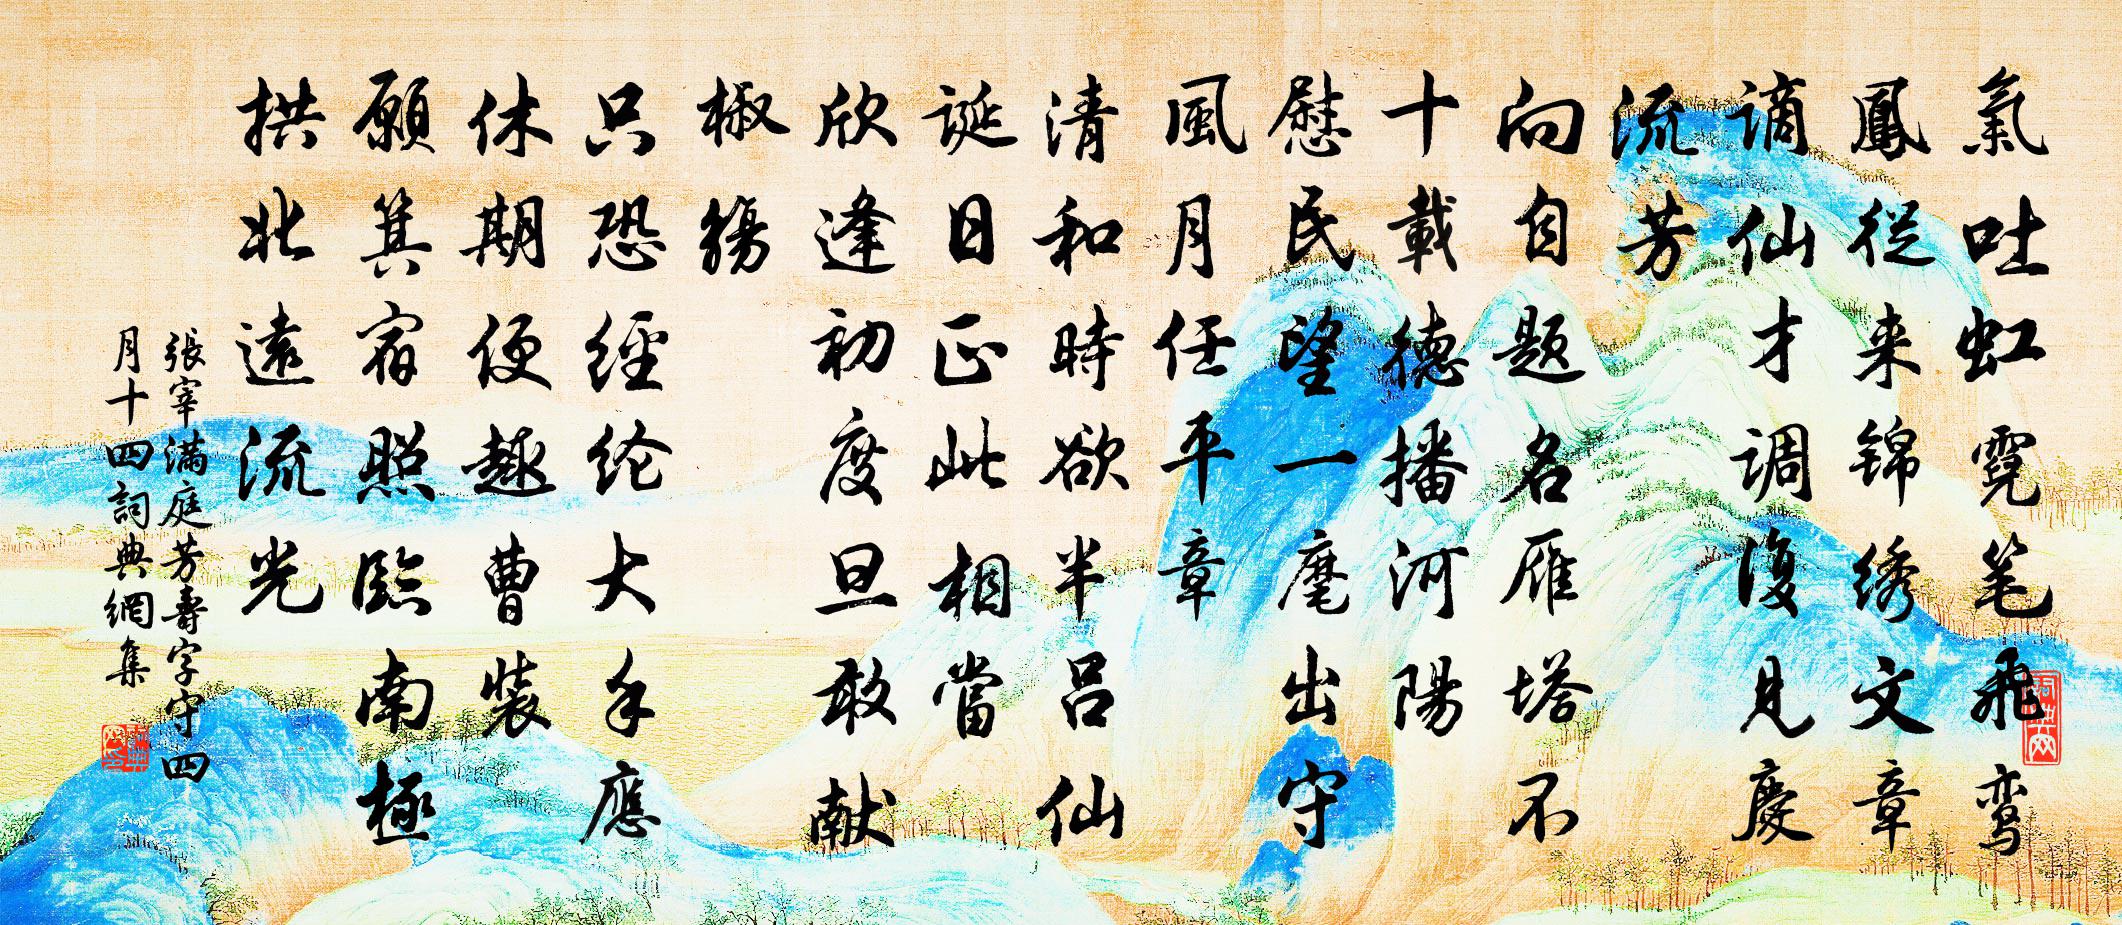 氣吐虹霓笔飛鸾
鳳從来锦绣文章
谪仙才调復見慶
流芳
向自题名雁塔不
十載德播河陽
慰民望一麾出守
風月任平章
清和時欲半吕仙
诞日正此相當
欣逢初度旦敢献
椒觴
只恐經纶大手應
休期便趣曹装
願箕宿照臨南極
拱北遠流光
張宰满庭芳壽字守四
月十四詞典網集